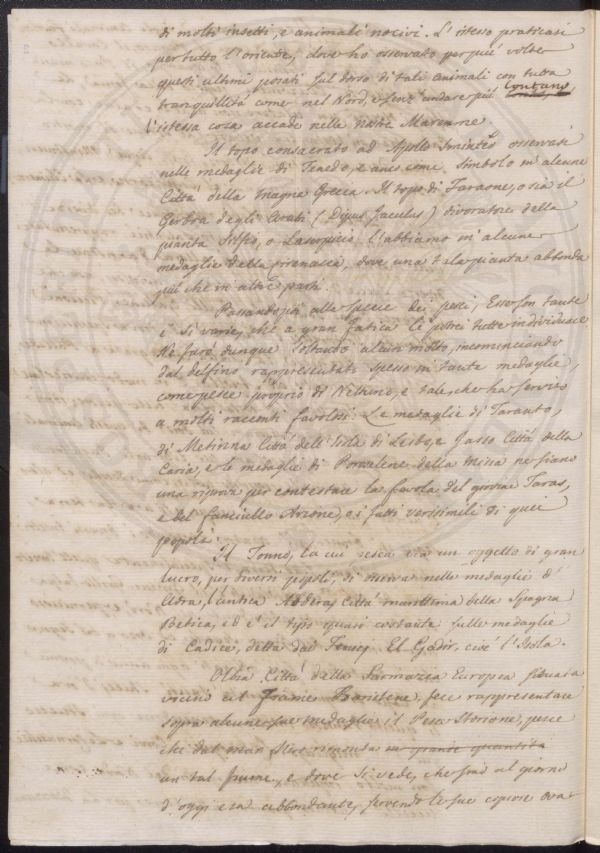 di molti insetti, e animali nocivi. L'istesso praticasi
per tutto l'oriente, dove hò osservato per più volte
questi ultimi posati sul dorso di tali animali con tutta
tranquillità come nel Nord, e senz'andare più lontano
l'istessa cosa accade nelle nostre Maremme.
Il topo consacrato ad Apollo Sminteo osservasi
nelle medaglie di Tenedo, e anco come simbolo in alcune
Città della Magna Grecia. Il topo di Faraone, o sia il
Gerboa degli Arabi (Dipus Jaculus) divoratore della
pianta Silfio, o Laserpizio l'abbiamo in alcune
medaglie della Cirenaica, dove una tale pianta abbonda
più che in altre parti.
Passando poi alle specie dei pesci, Esse son tante
e si varie, che a gran fatica le potrei tutte individuare
Ne farò dunque soltanto alcun motto, incominciando
dal delfino rappresentato spesso in tante medaglie,
come pesce proprio di Nettuno, e tale che ha servito
a molti racconti favolosi. Le medaglie di Taranto,
di Metinna Città dell'Isola di Lesbo, e Jasso Città della
Caria, e le medaglie di Poroselene della Misia ne siano
una riprova per contestare la favola del giovine Taras,
e del fanciullo Arione, o i fatti verisimili di quei
popoli.
Il Tonno, la cui pesca era un oggetto di gran
lucro, per diversi popoli, si osserva nelle medaglie d'
Adra, l'antica Abdera, Città marittima della Spagna
Betica, ed è il tipo quasi costante sulle medaglie
di Cadice, detta dai Fenicj El Gadir, cioè l'Isola.
Olbia Città della Sarmazia Europea situata
vicino al Fiume Boristene, fece rappresentare
sopra alcune sue medaglie il Pesce Storione, pesce
che dal mar rimonta in grande quantità
un tal fiume, e dove si vede, che fino al giorno
d'oggi era abbondante, servendo le sue copiose ova